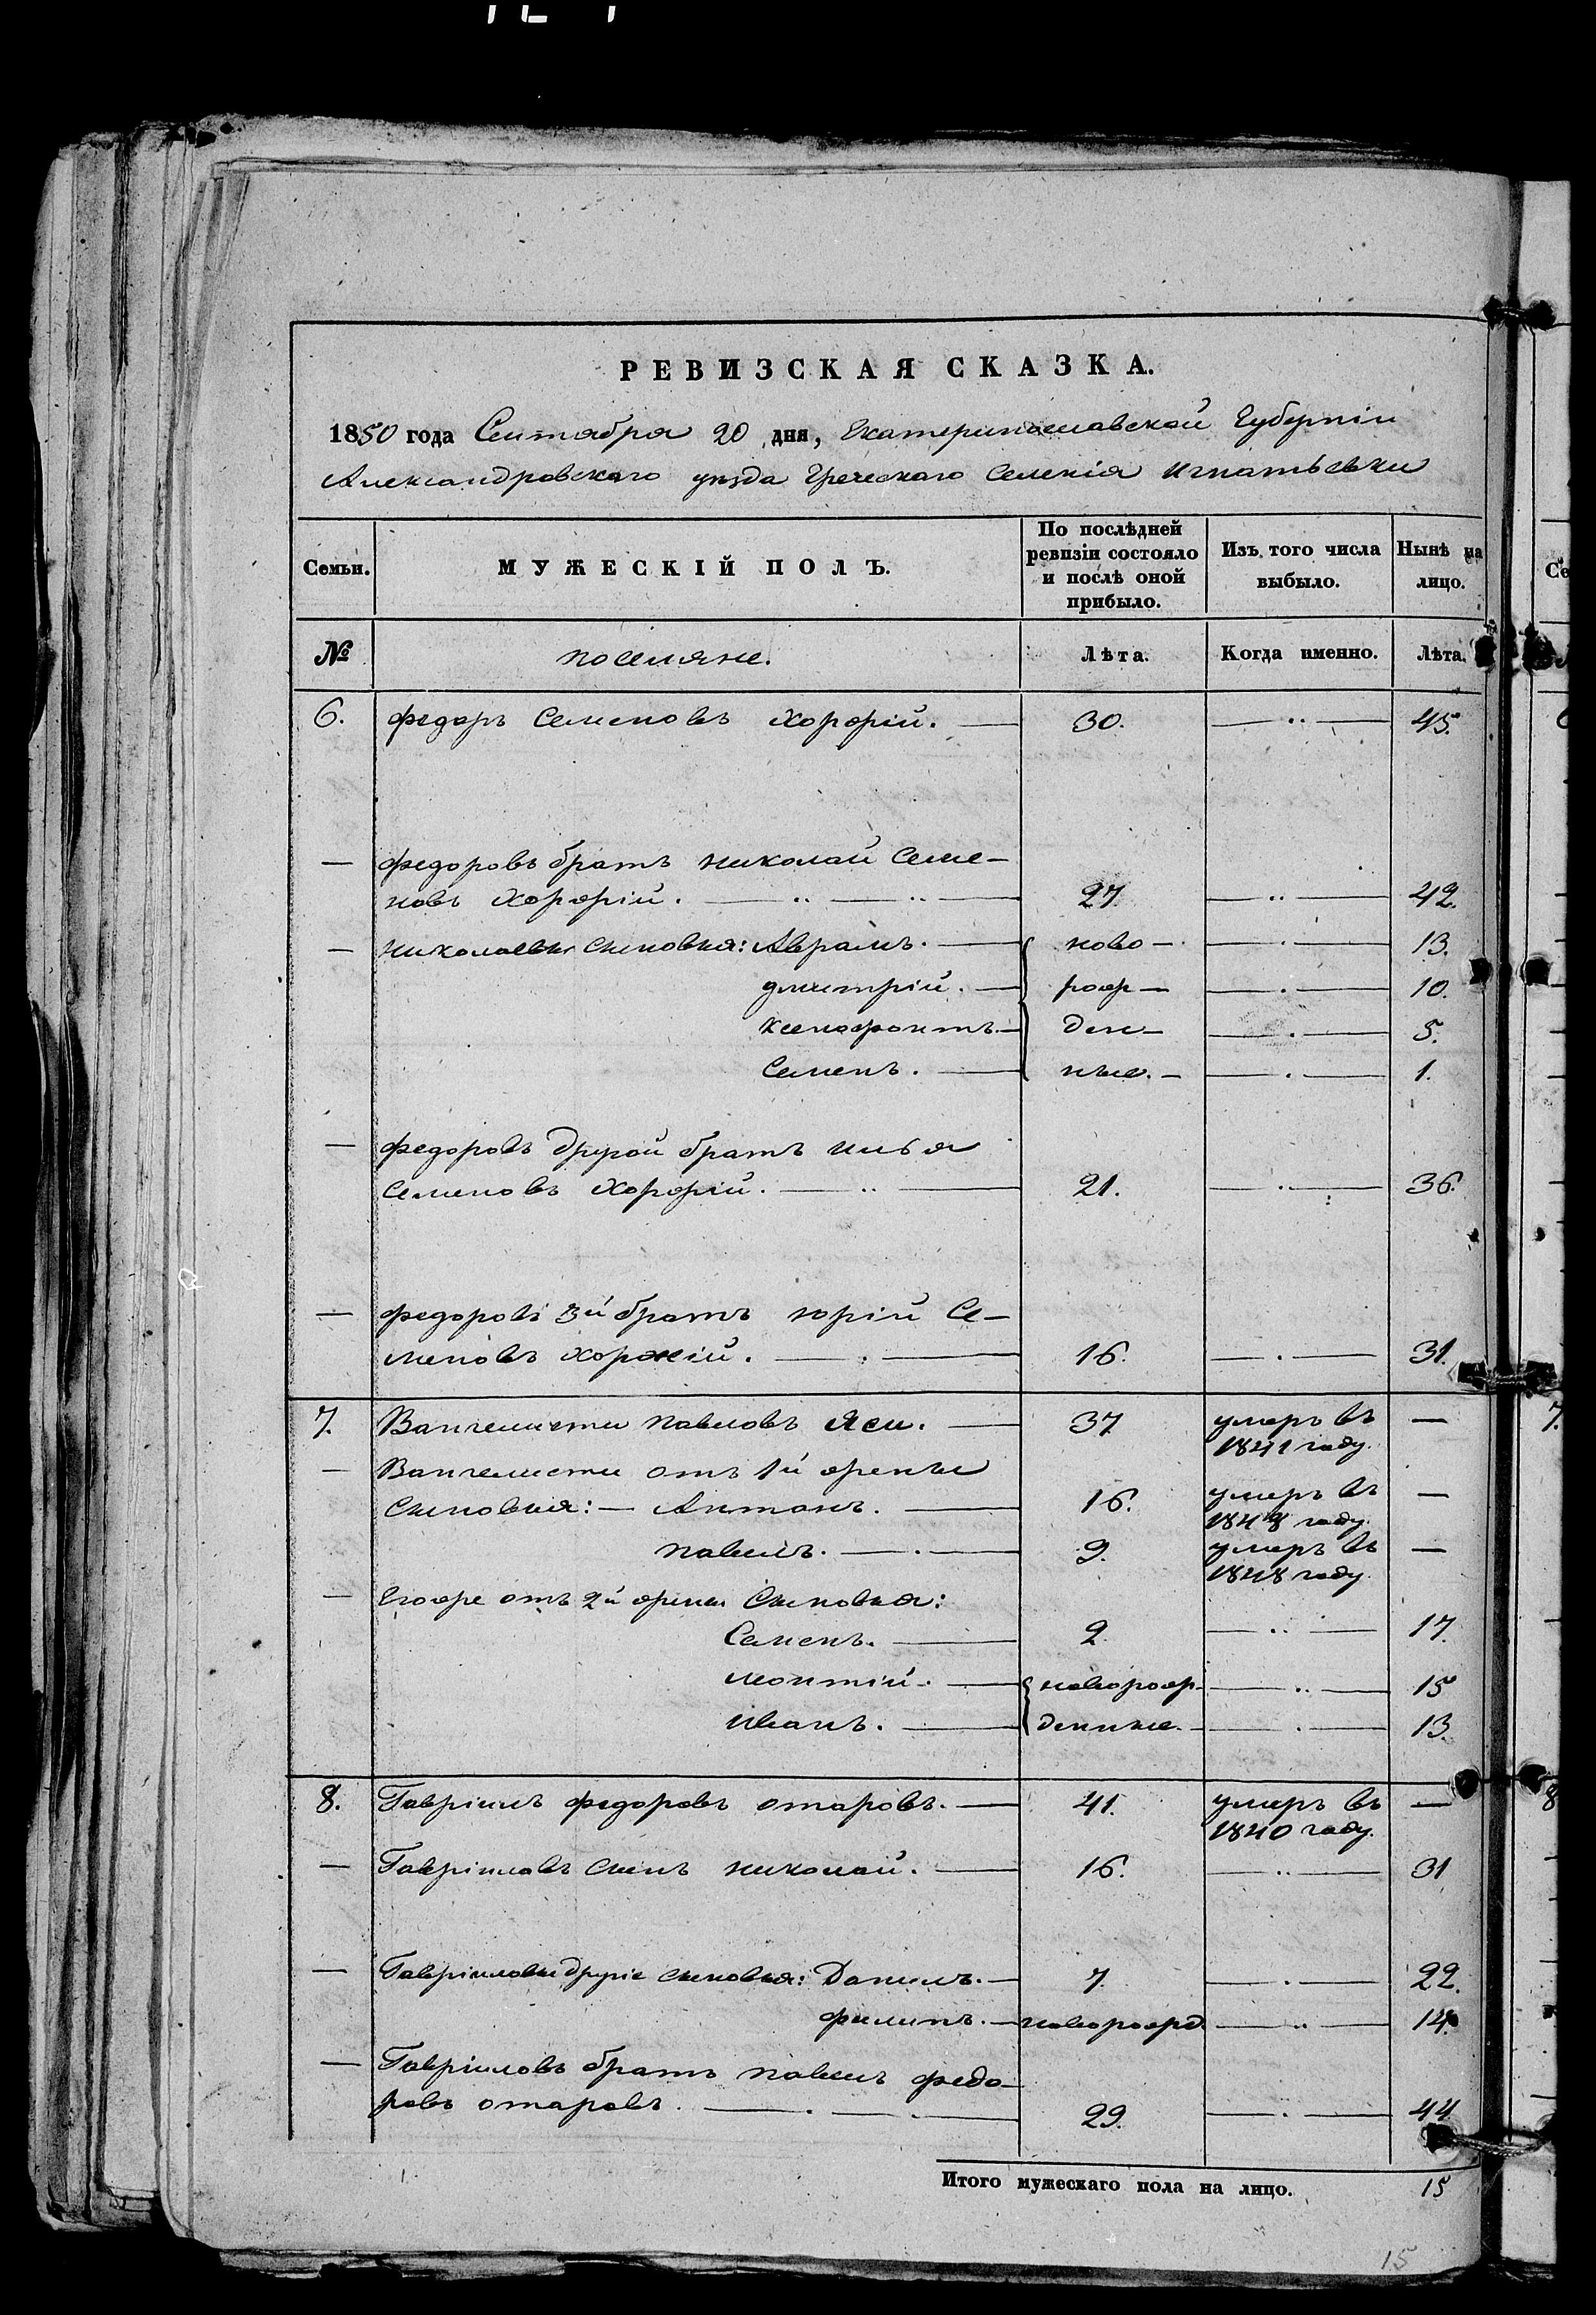 РЕВИЗСКАЯ СКАЗКА.
1850 года Сентября 20 дня, Екатеринославской Губерніи
Александровскаго уѣзда Греческаго Селенія Игнатьевки
Семьи. МУЖЕСКІЙ ПОЛЪ. По послѣдней ревизіи состояло и послѣ оной прибыло. Изъ того числа выбыло. Нынѣ на лицо.
№ поселяне. Лѣта. Когда именно. Лѣта.
6. Федоръ Семеновъ Хоржій. — 30. — 45.
— Федоровъ братъ Николай Семе-
новъ Хоржій. — 27 — 42.
— Николаевы сыновья: Аврамъ. — ново- — 13.
Дмитрій. — рож- — 10.
Ксенофонтъ. — ден- — 5.
Семенъ. — ные. — 1.
— Федоровъ другой братъ Илья
Семеновъ Хоржій. — 21. — 36.
— Федоровъ 3й братъ Юрій Се-
меновъ Хоржій. — 16. — 31.
7. Вангелисти Павловъ Яси. — 37 умеръ въ —
1841 году.
— Вангелисти отъ 1й жены
сыновья: — Антонъ. — 16. умеръ въ —
1848 году.
Павелъ. — 9. умеръ въ —
1848 году.
— Егоже отъ 2й жены сыновья:
Семенъ. — 2. — 17.
Леонтій. — новорож- — 15
Иванъ. — денные. — 13.
8. Гавріилъ Федоровъ Отаровъ. — 41. умеръ въ —
1840 году.
— Гавріиловъ сынъ Николай. — 16. — 31
— Гавріиловы другіе сыновья: Данилъ. — 7. — 22.
Филипъ. — новорожд. — 14.
— Гавріиловъ братъ Павелъ Федо-
ровъ Отаровъ. — 29. — 44
Итого мужескаго пола на лицо. 15
15